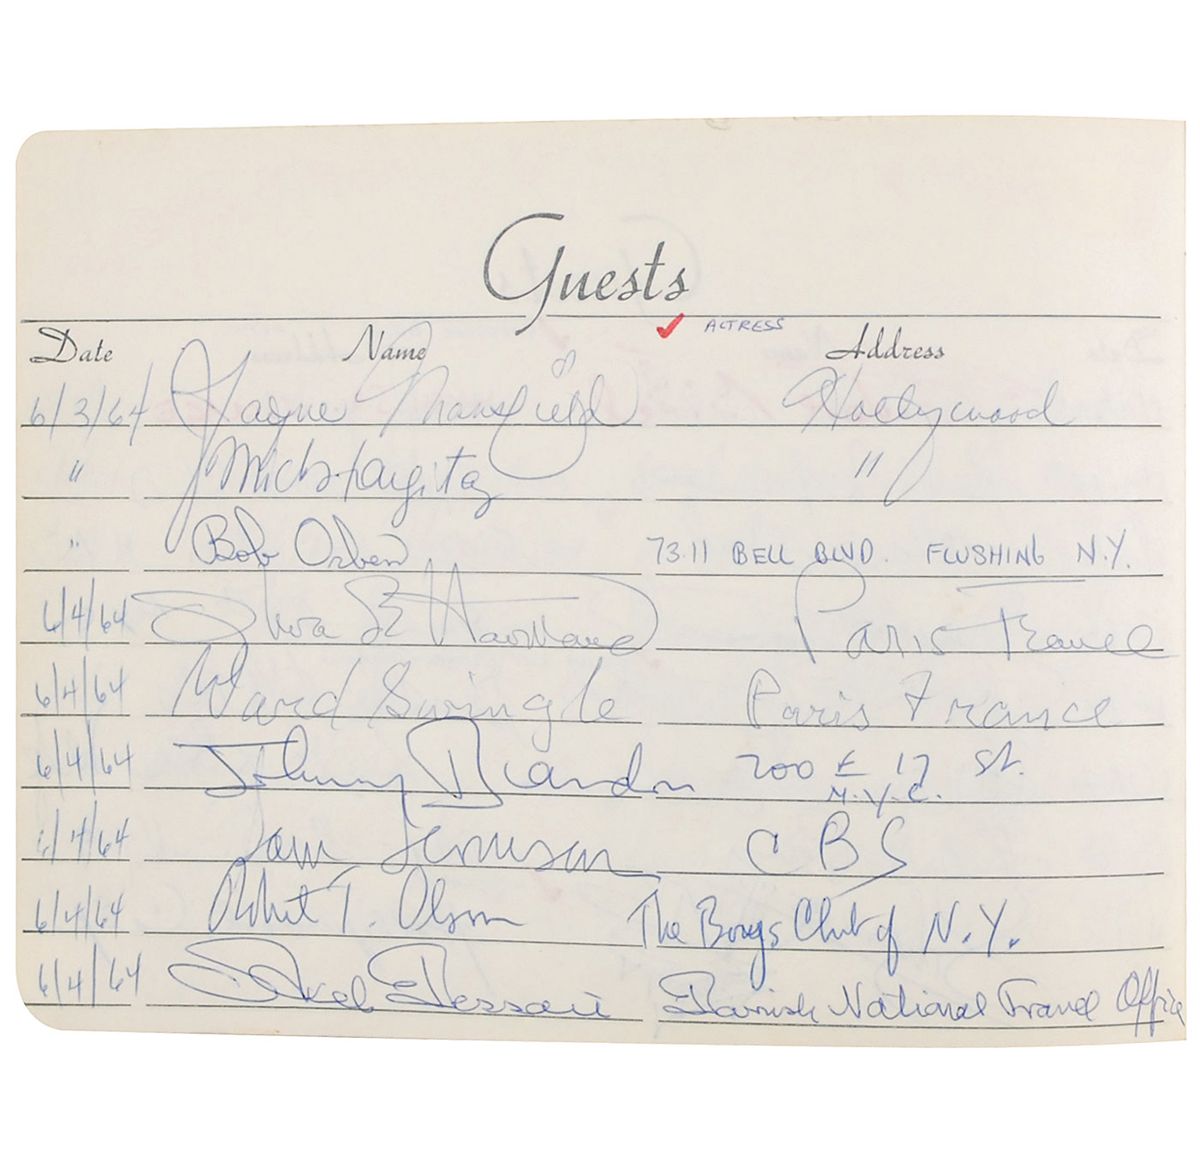 Guests
✓ ACTRESS
Date Name Address
6/3/64 Jayne Mansfield Hollywood
" Mick Hargitay "
" Bob Orben 73-11 BELL BLVD. FLUSHING N.Y.
6/4/64 Olivia de Havilland Paris France
6/4/64 Ward Swingle Paris France
6/4/64 Johnny Brandon 200 E 17 St.
N.Y.C.
6/4/64 CBS
6/4/64 Robert T. Olson The Boys Club of N.Y.
6/4/64 Axel Dessau Danish National Travel Office